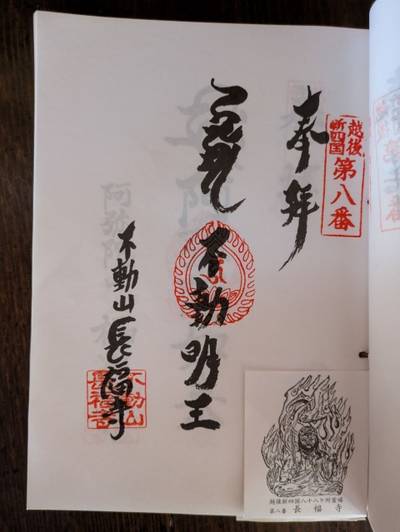 越後
新四国
第八番
奉拝
不動明王
不動山 長福寺
不動山
長福寺
越後新四国八十八ヶ所霊場
第八番 長福寺